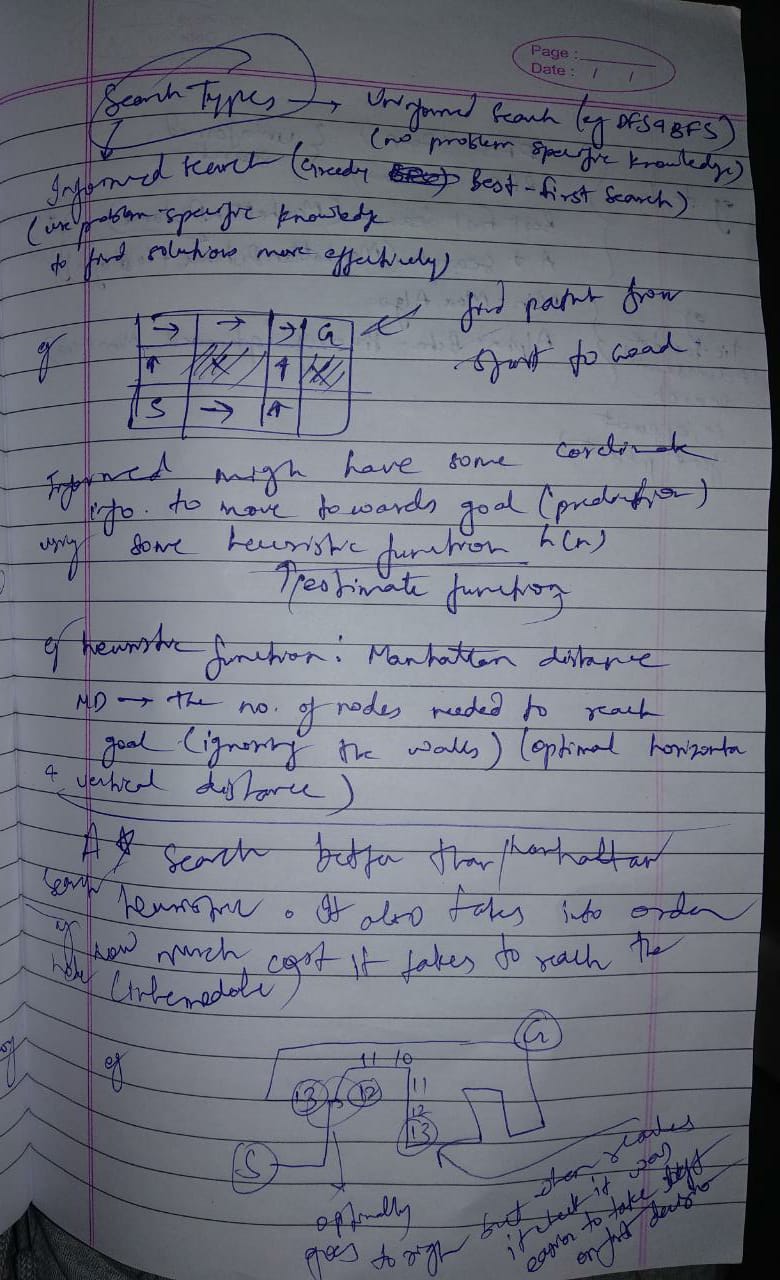 Page :
Date : / /
Search Types → Uninformed search (eg DFS & BFS)
(no problem specific knowledge)
Informed search (Greedy Best-first Search)
(use problem-specific knowledge
to find solutions more effectively)
find path from
start to
eg
→ → → G
↑ ↑
S → ↑
Informed migh have some
info. to move towards goal (prediction)
using some heuristic function h(n)
↑ estimate function
eg heuristic function: Manhattan distance
MD → the no. of nodes needed to reach
goal (ignoring the walls) (optimal horizonta
& vertical distance)
A* search better than Manhattan
search
heuristic. It also takes into order
how much cost it takes to reach the
(intermediate)
eg
G
11 10
13 12 11
12
13
S
optimally
goes to righ but when reaches
it check it was
easier to take left